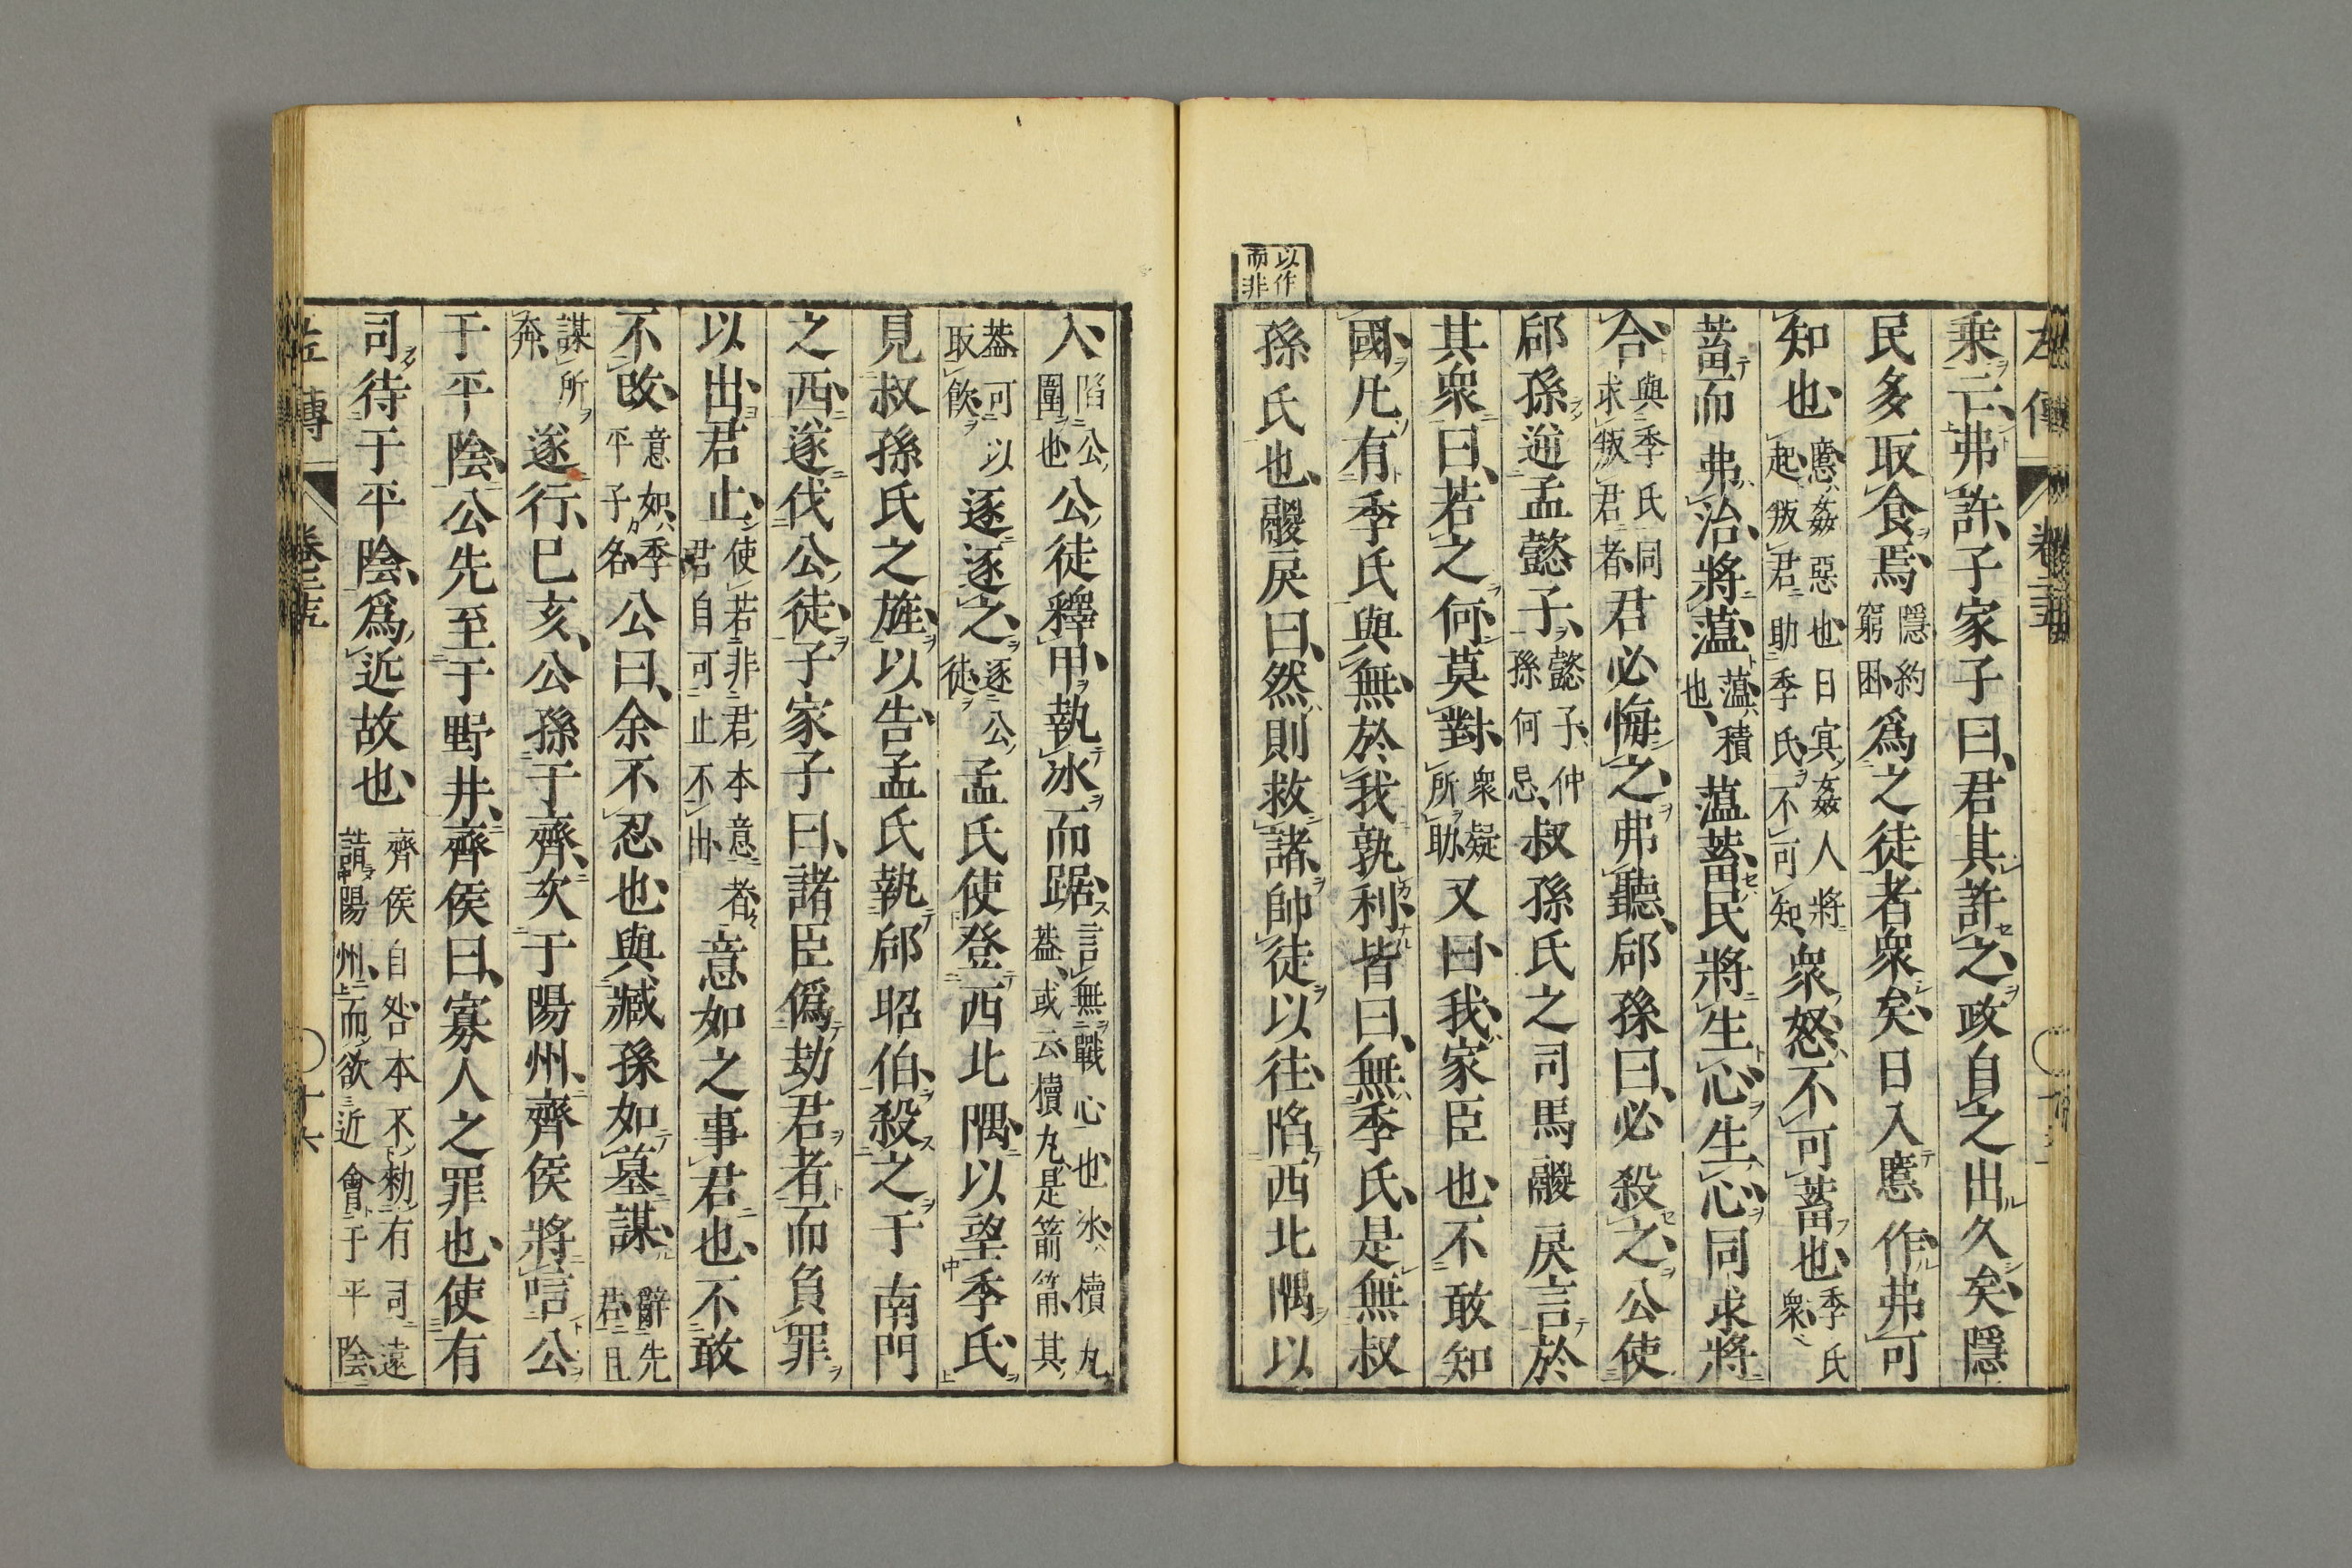 左傳 卷二十五
乘亡弗許子家子曰君其許之政自之出久矣隱
民多取食焉隱約窮困爲之徒者衆矣日入慝作弗可
知也慝姦惡也日冥姦人將起叛君助季氏不可知衆怒不可蓄也季氏衆
蓄而弗治將薀薀積也薀蓄民將生心生心同求將
合與季氏同求叛君者君必悔之弗聽郈孫曰必殺之公使
郈孫逆孟懿子懿子仲孫何忌叔孫氏之司馬鬷戾言於
其衆曰若之何莫對衆疑所助又曰我家臣也不敢知
國凡有季氏與無於我孰利皆曰無季氏是無叔
孫氏也鬷戾曰然則救諸帥徒以往陷西北隅以
以作而非
入陷公圍也公徒釋甲執冰而踞言無戰心也冰櫝丸蓋或云櫝丸是箭筩其
蓋可以取飮遂逐之逐公徒孟氏使登西北隅以望季氏
見叔孫氏之旌以告孟氏執郈昭伯殺之于南門
之西遂伐公徒子家子曰諸臣僞劫君者而負罪
以出君止使若非君本意者君自可止不出意如之事君也不敢
不改意如季平子名公曰余不忍也與臧孫如墓謀辭先君且
謀所奔遂行己亥公孫于齊次于陽州齊侯將唁公
于平陰公先至于野井齊侯曰寡人之罪也使有
司待于平陰爲近故也齊侯自咎本不勑有司遠請陽州而欲近會于平陰
左傳 卷二十五 〇十六